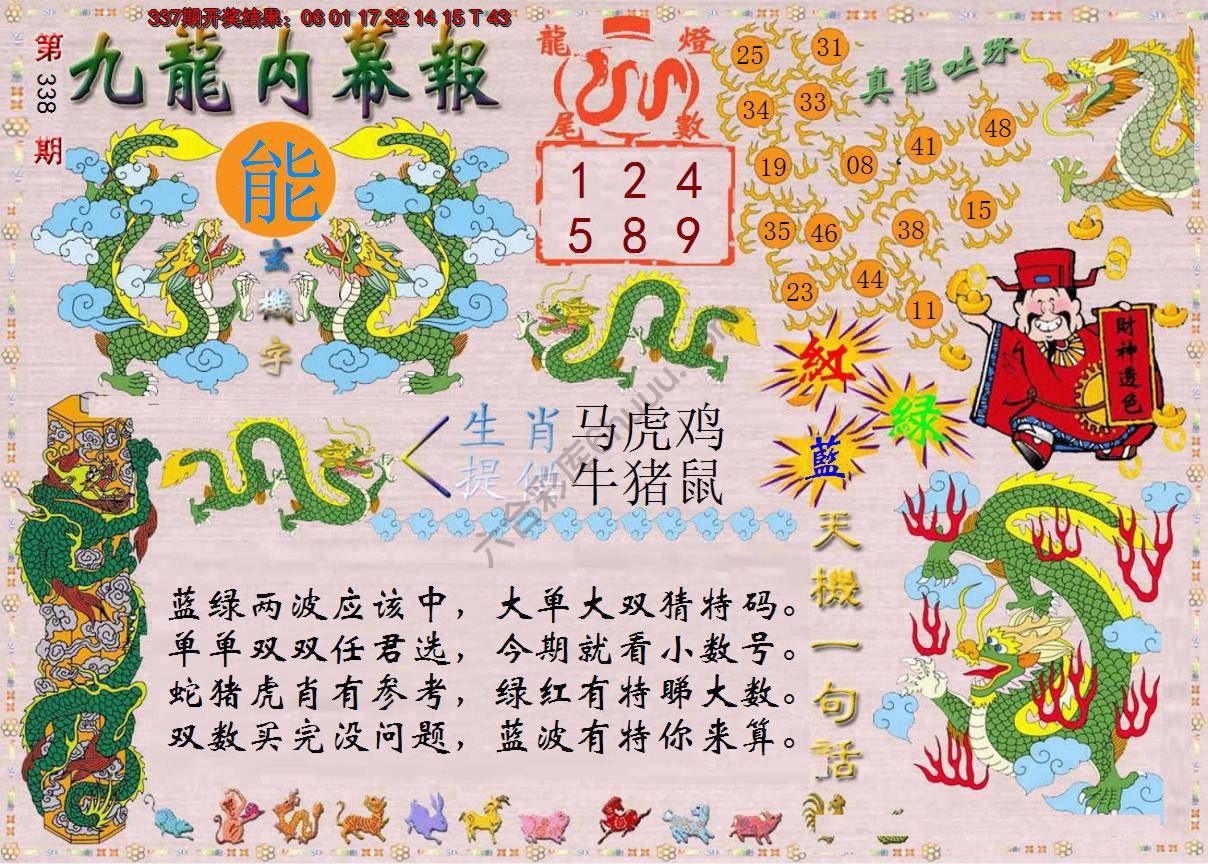 337期开奖结果：06 01 17 32 14 15 T 43
第338期
九龍内幕報
能
玄機字
龍燈尾數
1 2 4
5 8 9
真龍吐珠
25 31
34 33
19 08 41 48
35 46 38 15
23 44 11
紅
綠
藍
財神透色
生肖提供
马虎鸡
牛猪鼠
天機一句話
蓝绿两波应该中，大单大双猜特码。
单单双双任君选，今期就看小数号。
蛇猪虎肖有参考，绿红有特睇大数。
双数买完没问题，蓝波有特你来算。